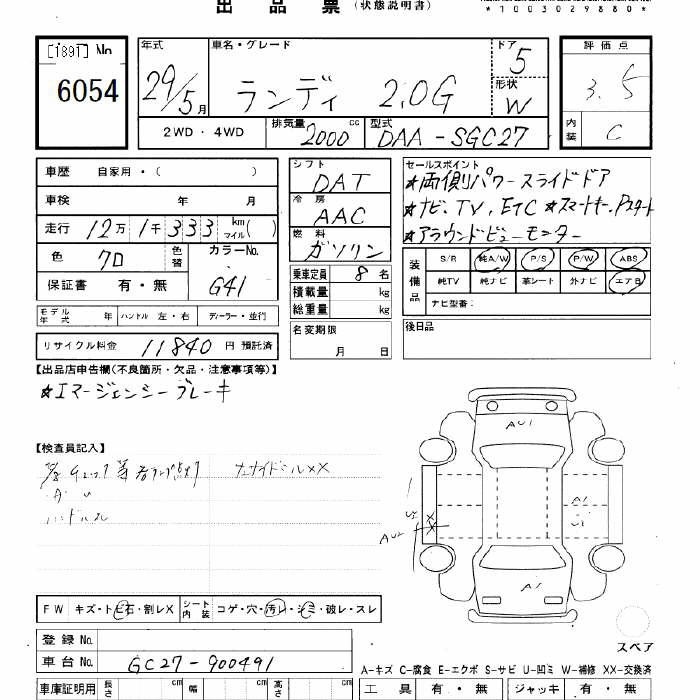 出品票(状態説明書)
*1003029880*
[1891] No
6054
年式 29/5月
車名・グレード ランディ 2.0G
ドア 5
形状 W
評価点 3.5
内装 C
2WD・4WD
排気量 2000 cc
型式 DAA-SGC27
車歴 自家用・( )
車検 年 月
走行 12万1千333 km マイル( )
色 クロ
色替
カラーNo. G41
保証書 有・無
モデル年式 年
ハンドル 左・右
ディーラー・並行
リサイクル料金 11840 円 預託済
シフト DAT
冷房 AAC
燃料 ガソリン
乗車定員 8 名
積載量 kg
総重量 kg
名変期限
月 日
セールスポイント
★両側パワースライドドア
★ナビ、TV、ETC ★スマートキー、Pスタート
★アラウンドビューモニター
装備品
S/R 純A/W P/S P/W ABS
純TV 純ナビ 革シート 外ナビ エアB
ナビ型番:
後日品
【出品店申告欄(不良箇所・欠品・注意事項等)】
★エマージェンシーブレーキ
【検査員記入】
ハンドルス
AU1
A1
U2
AU2
A1
FW キズ・ト ビ石・割レX
シート内装 コゲ・穴・汚レ・シミ・破レ・スレ
登録No.
車台No. GC27-900491
スペア
A-キズ C-腐食 E-エクボ S-サビ U-凹ミ W-補修 XX-交換済
車庫証明用 長さ cm 幅 cm 高さ cm
工具 有・無
ジャッキ 有・無